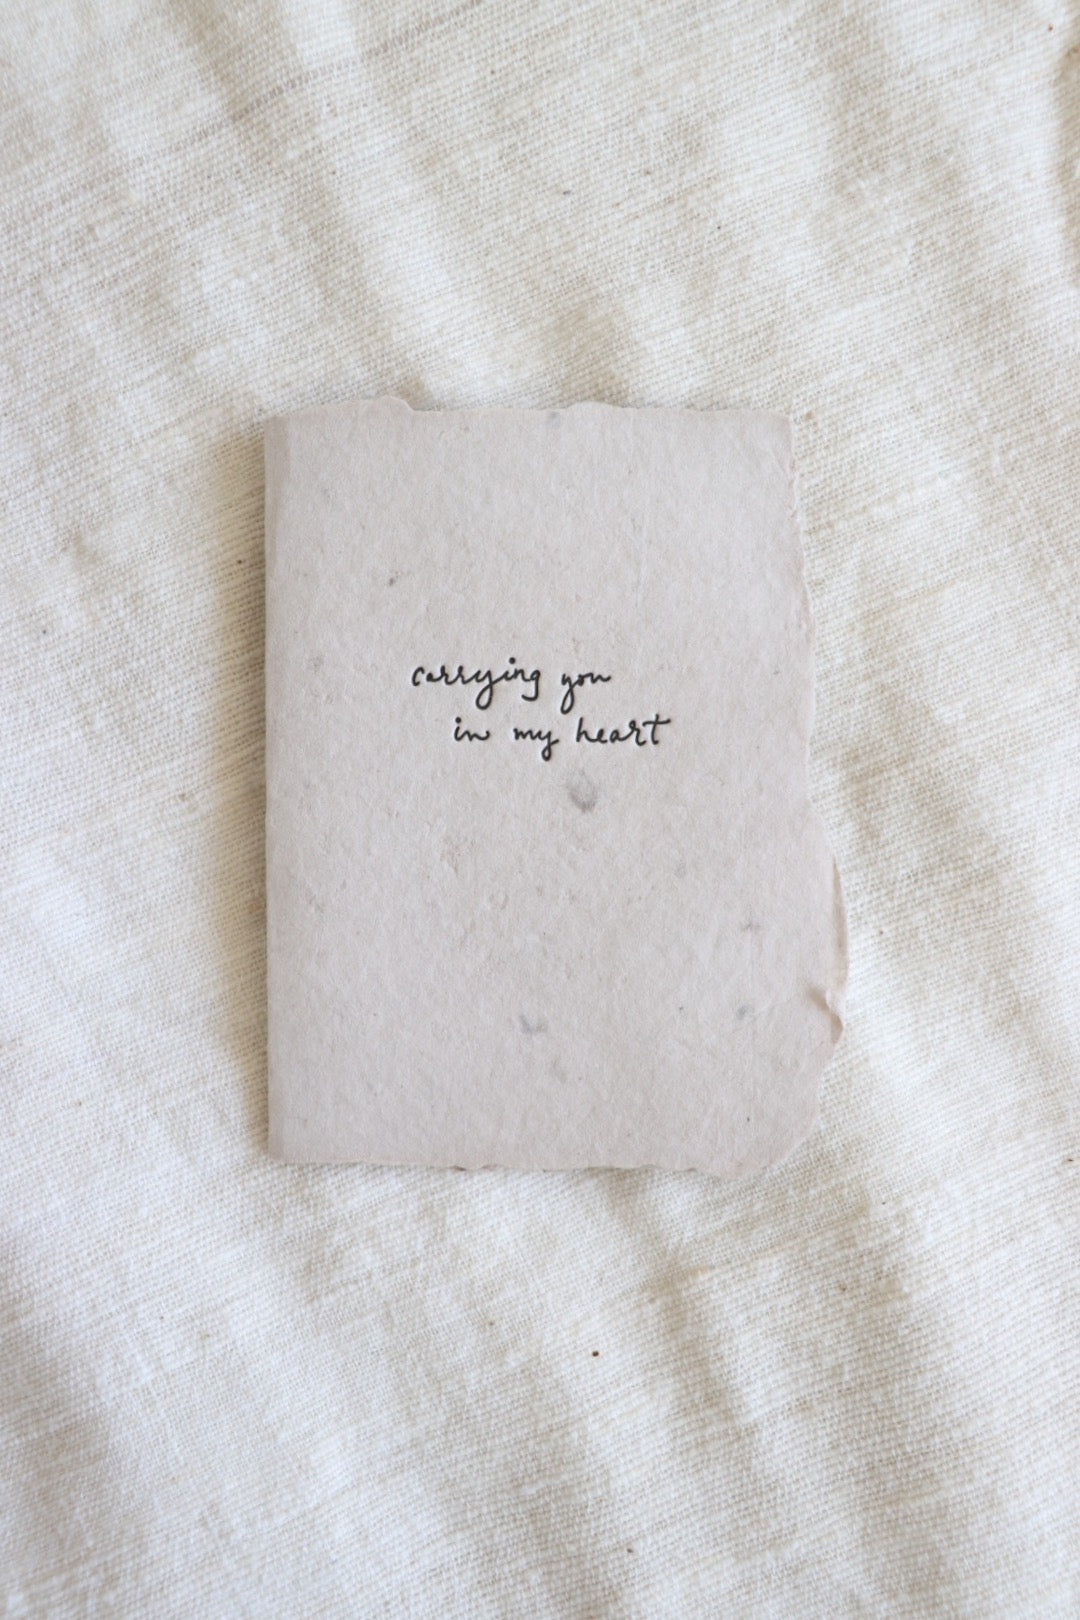 carrying you
in my heart